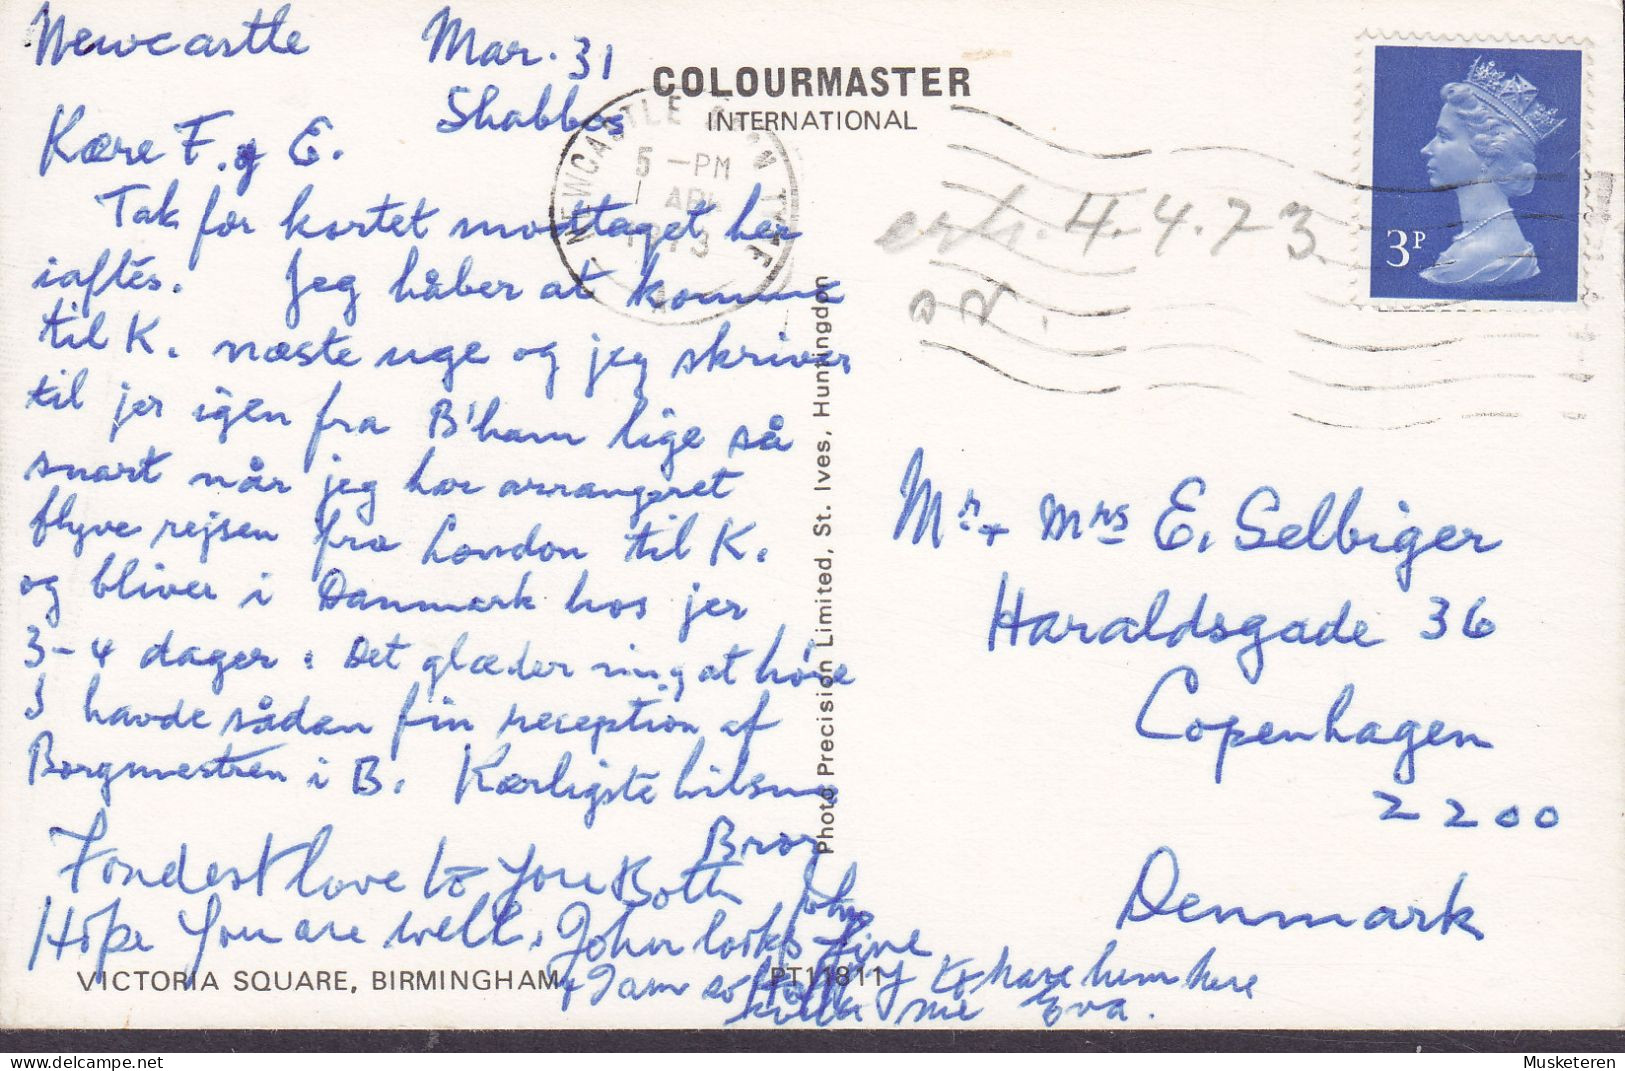 Newcastle Mar. 31
Shabbos
Kære F. og E.
Tak for kortet modtaget her
iaftes. Jeg håber at komme
til K. næste uge og jeg skriver
til jer igen fra B'ham lige så
snart når jeg har arrangeret
flyve rejsen fra London til K.
og bliver i Danmark hos jer
3-4 dager. Det glæder mig at høre
I havde sådan fin reception af
Borgmestren i B. Kærligste hilsner
Bror
John
Fondest love to you Both
Hope You are well, John looks fine
& I am so to have him here
me Eva.
VICTORIA SQUARE, BIRMINGHAM.
PT11811
COLOURMASTER
INTERNATIONAL
Photo Precision Limited, St. Ives, Huntingdon
NEWCASTLE
5 -PM
APR
1973
A
3P
4.4.73
Mr + Mrs E. Selbiger
Haraldsgade 36
Copenhagen
2200
Denmark
Musketeren
delcampe.net